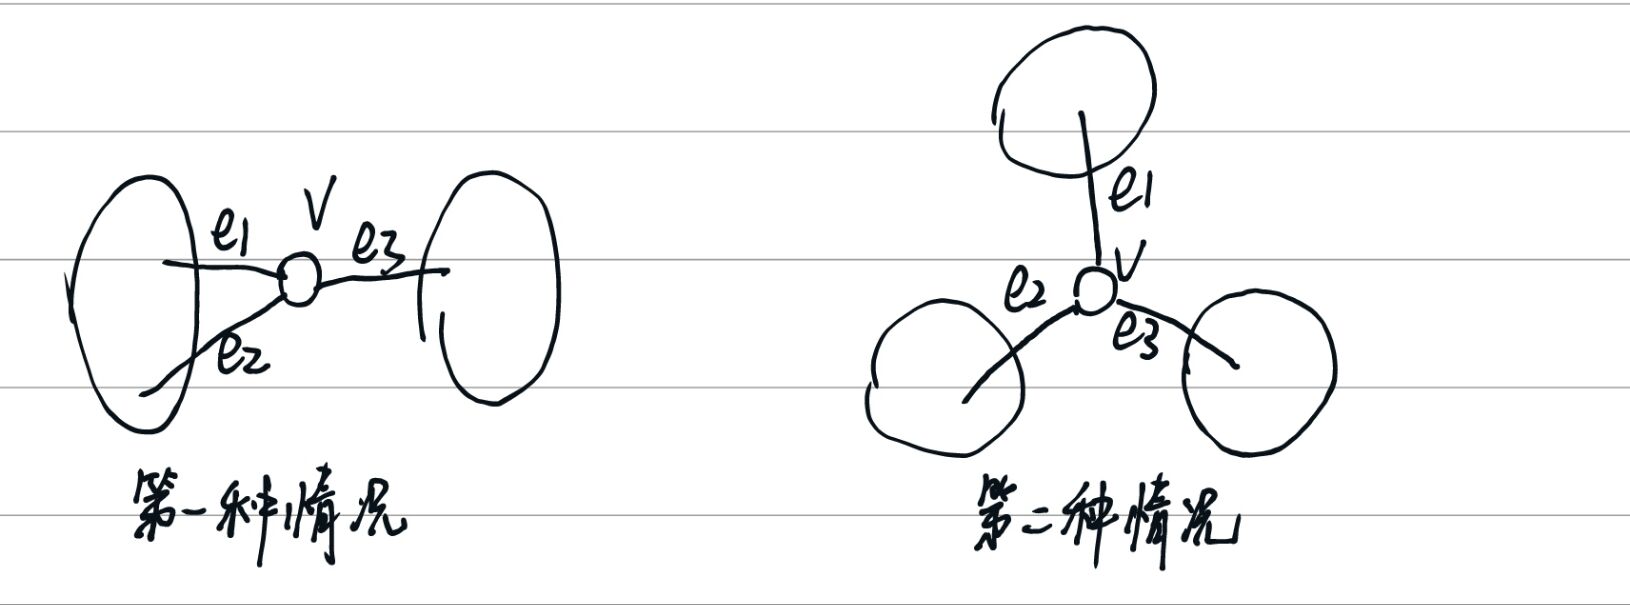 e1
V
e3
e2
第一种情况
e1
V
e2
e3
第二种情况